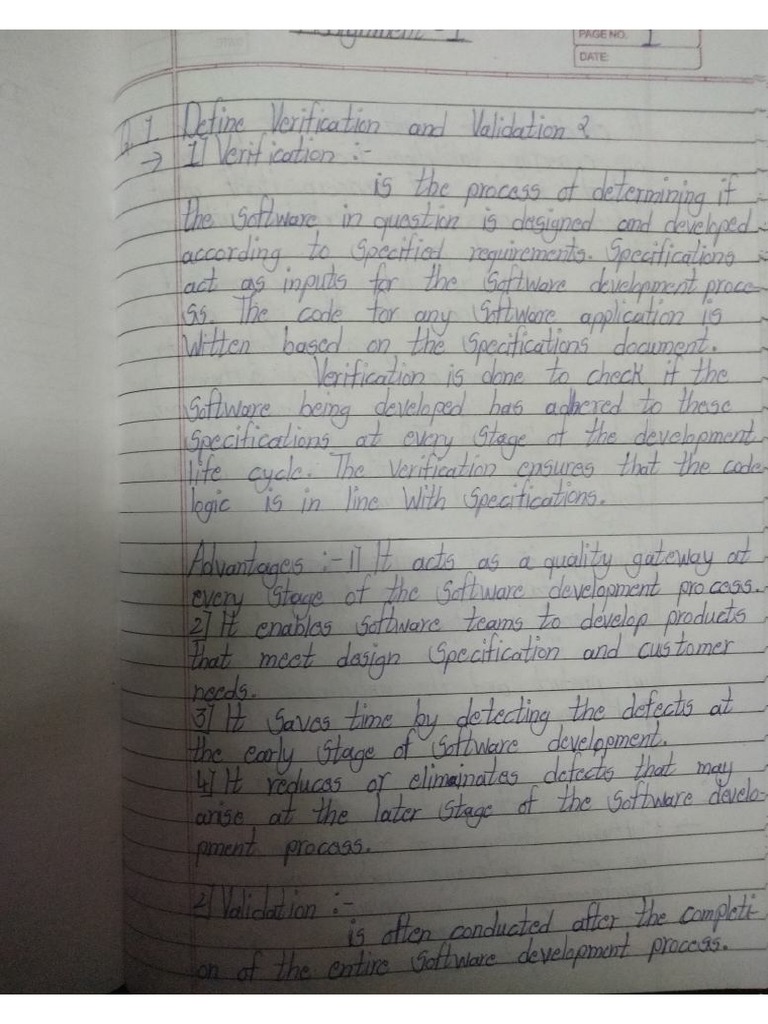 Assignment - 1
PAGE NO. 1
DATE:
Q.1 Define Verification and Validation ?
→ 1] Verification :-
is the process of determining if
the software in question is designed and developed
according to specified requirements. Specifications
act as inputs for the software development proce-
ss. The code for any software application is
Written based on the specifications document.
Verification is done to check if the
software being developed has adhered to these
specifications at every stage of the development
life cycle. The verification ensures that the code
logic is in line with specifications.
Advantages :- 1] It acts as a quality gateway at
every stage of the software development process.
2] It enables software teams to develop products
that meet design specification and customer
needs.
3] It saves time by detecting the defects at
the early stage of software development.
4] It reduces or elimainates defects that may
arise at the later stage of the software develo-
pment process.
2] Validation :-
is often conducted after the completi-
on of the entire software development process.